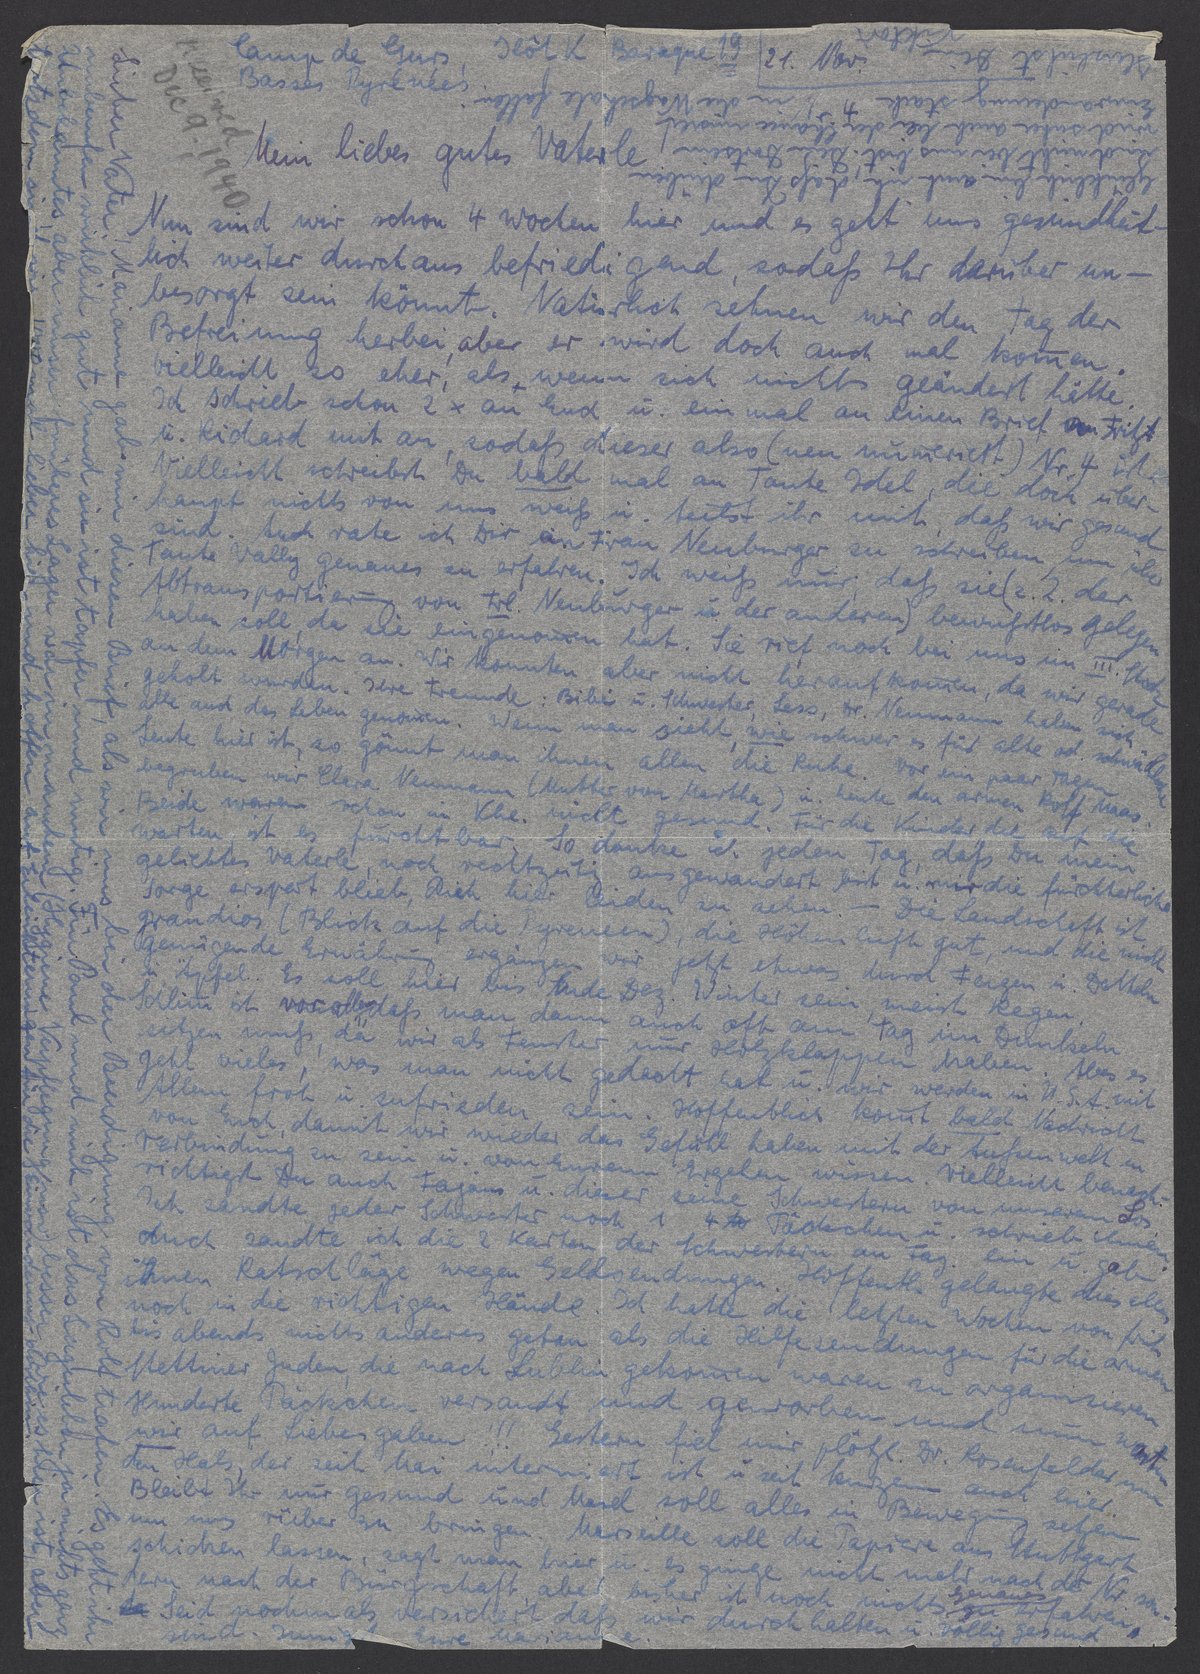 Camp de Gurs, Ilôt K Baraque 19 21. Nov.
Basses Pyrénées.
received
Dec 9. 1940
Mein liebes gutes Vaterle!
Nun sind wir schon 4 Wochen hier und es geht uns gesundheit-
lich weiter durchaus befriedigend, sodaß Ihr darüber un-
besorgt sein könnt. Natürlich sehnen wir den Tag der
Befreiung herbei, aber er wird doch auch mal kom̄en.
Vielleicht so eher, als wenn sich nichts geändert hätte.
Ich schrieb schon 2 x an Euch u. einmal an einen Brief an Fritz
u. Richard mit an, sodaß dieser also (neu numeriert) Nr. 4 ist.
Vielleicht schreibst Du bald mal an Tante Idel, die doch über-
haupt nichts von uns weiß u. teilst ihr mit, daß wir gesund
sind. Auch rate ich Dir an Frau Neuburger zu schreiben, um über
Tante Vally genaues zu erfahren. Ich weiß nur, daß sie (z. Z. der
Abtransportierung von Frl. Neuburger u. der anderen) bewußtlos gelegen
haben soll, da sie eingenom̄en hat. Sie rief noch bei uns im III. Stock
an dem Morgen an. Wir konnten aber nicht heraufkom̄en, da wir gerade
geholt wurden. Ihre Freunde: Bibi u. Schwester, Less, Dr. Neumann haben sich
alle auch das Leben genom̄en. Wenn man sieht, wie schwer es für alte od. schwächere
Leute hier ist, so gönnt man ihnen allen die Ruhe. Vor ein paar Tagen
begruben wir Clara Neumann (Mutter von Martha) u. heute den armen Rolf Maas.
Beide waren schon in Khe. nicht gesund. Für die Kinder die auf die
warten, ist es furchtbar. So danke ich jeden Tag, daß Du mein
geliebtes Vaterle, noch rechtzeitig ausgewandert bist u. mir die fürchterliche
Sorge erspart blieb, Dich hier leiden zu sehen. — Die Landschaft ist
grandios (Blick auf die Pyreneen), die Höhenluft gut, und die nicht
genügende Ernährung ergänzen wir jetzt etwas durch Feigen u. Datteln
u. Äpfel. Es soll hier bis Ende Dez. Winter sein, meist Regen.
Schlim̄ ist vor allem daß man dann auch oft am Tag im Dunkeln
sitzen muß, da wir als Fenster nur Holzklappen haben. Aber es
geht vieles, was man nicht gedacht hat u. wir werden in U.S.A. mit
Allem froh u. zufrieden sein. Hoffentlich kom̄t bald Nachricht
von Euch, damit wir wieder das Gefühl haben mit der Außenwelt in
Verbindung zu sein u. von Eurem Ergehen wissen. Vielleicht benach-
richtigst Du auch Fajans u. dieser seine Schwestern von unserem Los.
Ich sandte jeder Schwester noch 4 Päckchen u. schrieb ihnen.
Auch sandte ich die 2 Karten der Schwestern an Faj. ein u. gab
ihnen Ratschläge wegen Geldsendungen. Hoffentl. gelangte dies alles
noch in die richtigen Hände. Ich hatte die letzten Wochen von früh
bis abends nichts anderes getan als die Hilfesendungen für die armen
Stettiner Juden, die nach Lublin gekom̄en waren zu organisieren
Hunderte Päckchen versandt und geworben und nun warten
wir auf Liebesgaben!!! Gestern fiel mir plötzl. Dr. Rosenfelder um
den Hals, der seit Mai interniert ist u. seit kurzem auch hier.
Bleibt Ihr nur gesund und Maul soll alles in Bewegung setzen
um uns rüber zu bringen. Marseille soll die Papiere aus Stuttgart
schicken lassen, sagt man hier u. es ginge nicht mehr nach der Nr. son-
dern nach der Bürgschaft, aber bisher ist noch nichts genaues zu erfahren.
Seid nochmals versichert, daß wir durchhalten u. völlig gesund
sind. Innigst Eure Marianne.
Lieber Vater! Marianne gab mir diesen Brief, als wir uns bei der Beerdigung von Rolf trafen. Es geht ihr
mitunter wirklich gut und sie ist tapfer und mutig. Für Paul und mich ist das Lagerleben ja nichts ganz
Unbekanntes, aber unser früheres Lager war in mancher (Hygiene, Verpflegung) besser, wie es hier ist, aber
trotzdem sind wir lieber hier und hoffen auf Erleichterungen für die
glücklich bin auch ich, daß Du drüben
und nicht bei uns bist. Dein Dortsein
wird sicher auch bei der Chance unserer
Einwanderung stark in die Wagschale fallen.
Herzlichst Dein
Viktor.